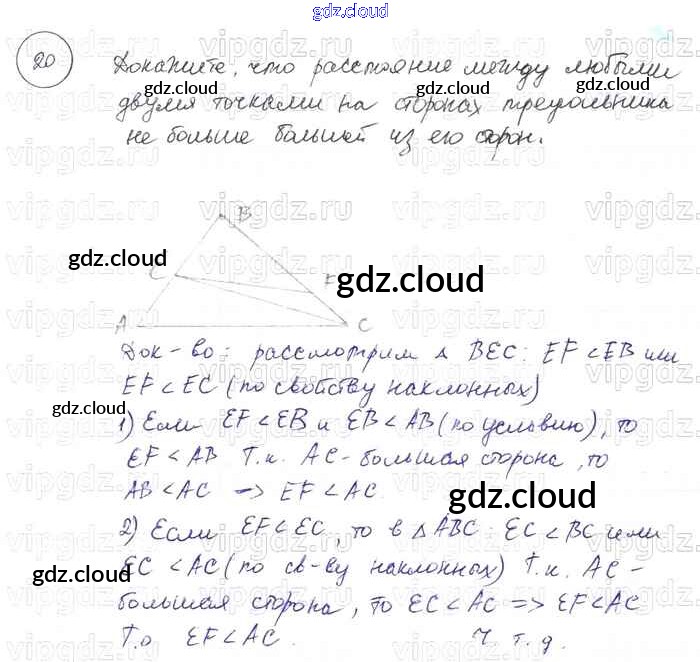 gdz.cloud
20
Докажите, что расстояние между любыми
двумя точками на сторонах треугольника
не больше большей из его сторон.
B
E
F
A
C
Док-во: рассмотрим △ BEC: EF < EB или
EF < EC (по свойству наклонных)
1) Если EF < EB и EB < AB (по условию), то
EF < AB т.к. AC - большая сторона, то
AB < AC => EF < AC.
2) Если EF < EC, то в △ABC: EC < BC или
EC < AC (по св-ву наклонных) т.к. AC -
большая сторона, то EC < AC => EF < AC
Т.о EF < AC. Ч.т.д.
gdz.cloud
gdz.cloud
gdz.cloud
gdz.cloud
gdz.cloud
gdz.cloud
gdz.cloud
gdz.cloud
gdz.cloud
vipgdz.ru